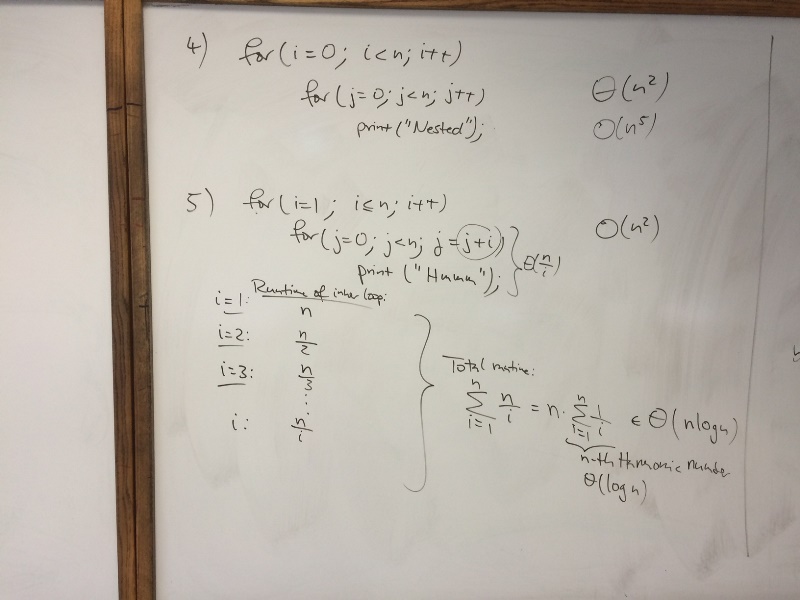 4) for(i=0; i<n; i++)
for(j=0; j<n; j++) Θ(n²)
print("Nested"); O(n⁵)
5) for(i=1; i≤n; i++)
for(j=0; j<n; j=j+i) O(n²)
print("Hmmm"); } Θ(n/i)
Runtime of inner loop:
i=1: n
i=2: n/2
i=3: n/3
⋮
i: n/i
Total runtime:
∑_{i=1}^{n} n/i = n · ∑_{i=1}^{n} 1/i ∈ Θ(n log n)
n-th Harmonic number
Θ(log n)